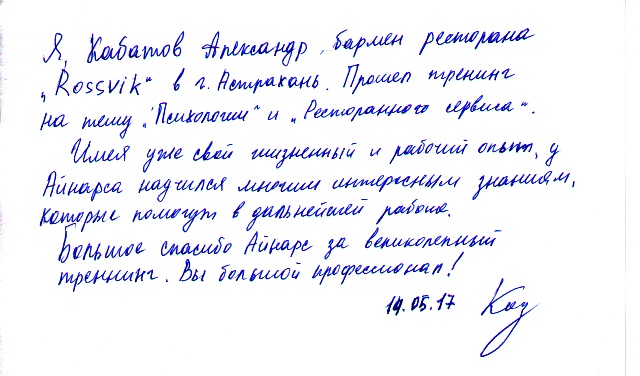 Я, Кабатов Александр, бармен ресторана
„Rossvik“ в г. Астрахань. Прошел тренинг
на тему „Психологии“ и „Ресторанного сервиса“.
Имея уже свой жизненный и рабочий опыт, у
Айнарса научился многим интересным знаниям,
которые помогут в дальнейшей работе.
Большое спасибо Айнарс за великолепный
треннинг. Вы большой профессионал!
19.05.17